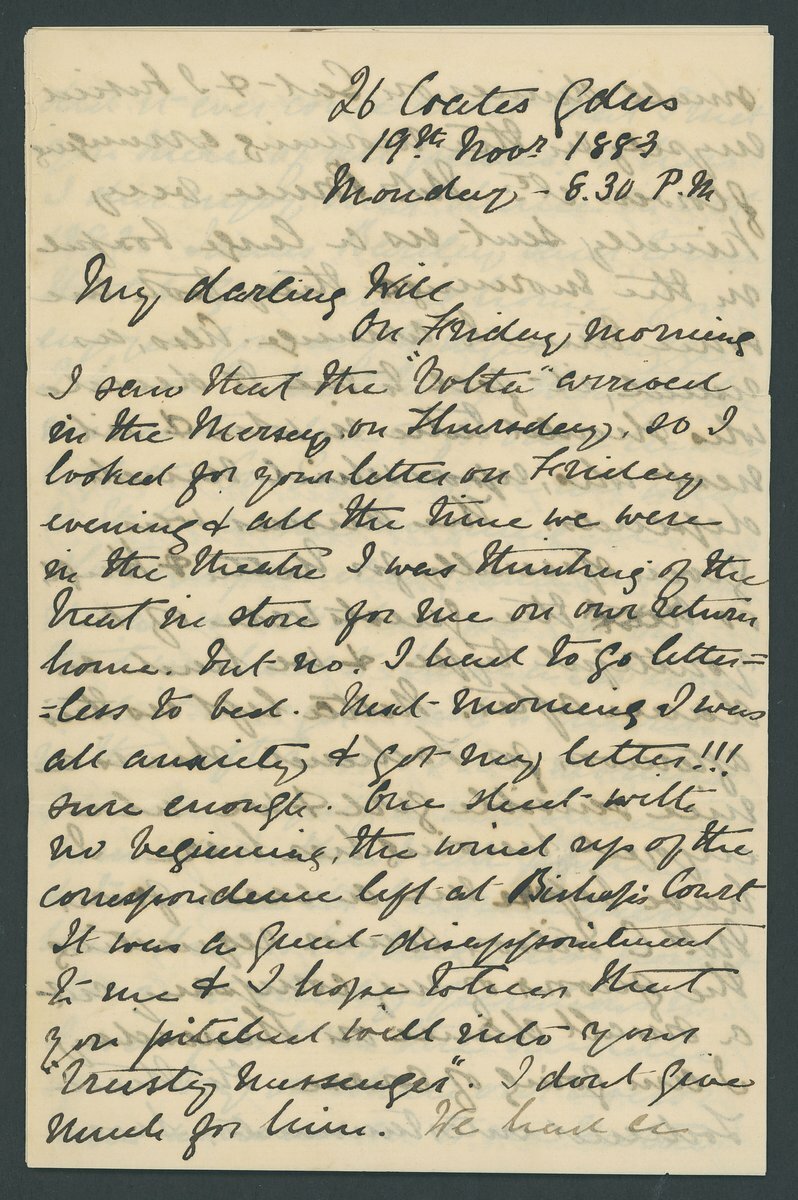 26 Coates Gdns
19th Novr 1883
Monday - 8.30 P.M
My darling Will
On Friday morning
I saw that the "Volta" arrived
in the Mersey on Thursday, so I
looked for your letter on Friday
evening & all the time we were
in the theatre I was thinking of the
treat in store for me on our return
home. But no. I had to go letter=
=less to bed. Next morning I was
all anxiety & got my letter!!!
sure enough. One sheet with
no beginning, the wind up of the
correspondence left at Bishop's Court
It was a great disappointment
to me & I hope to hear that
you pitched well into your
"trusty messenger". I dont give
much for him. We had a